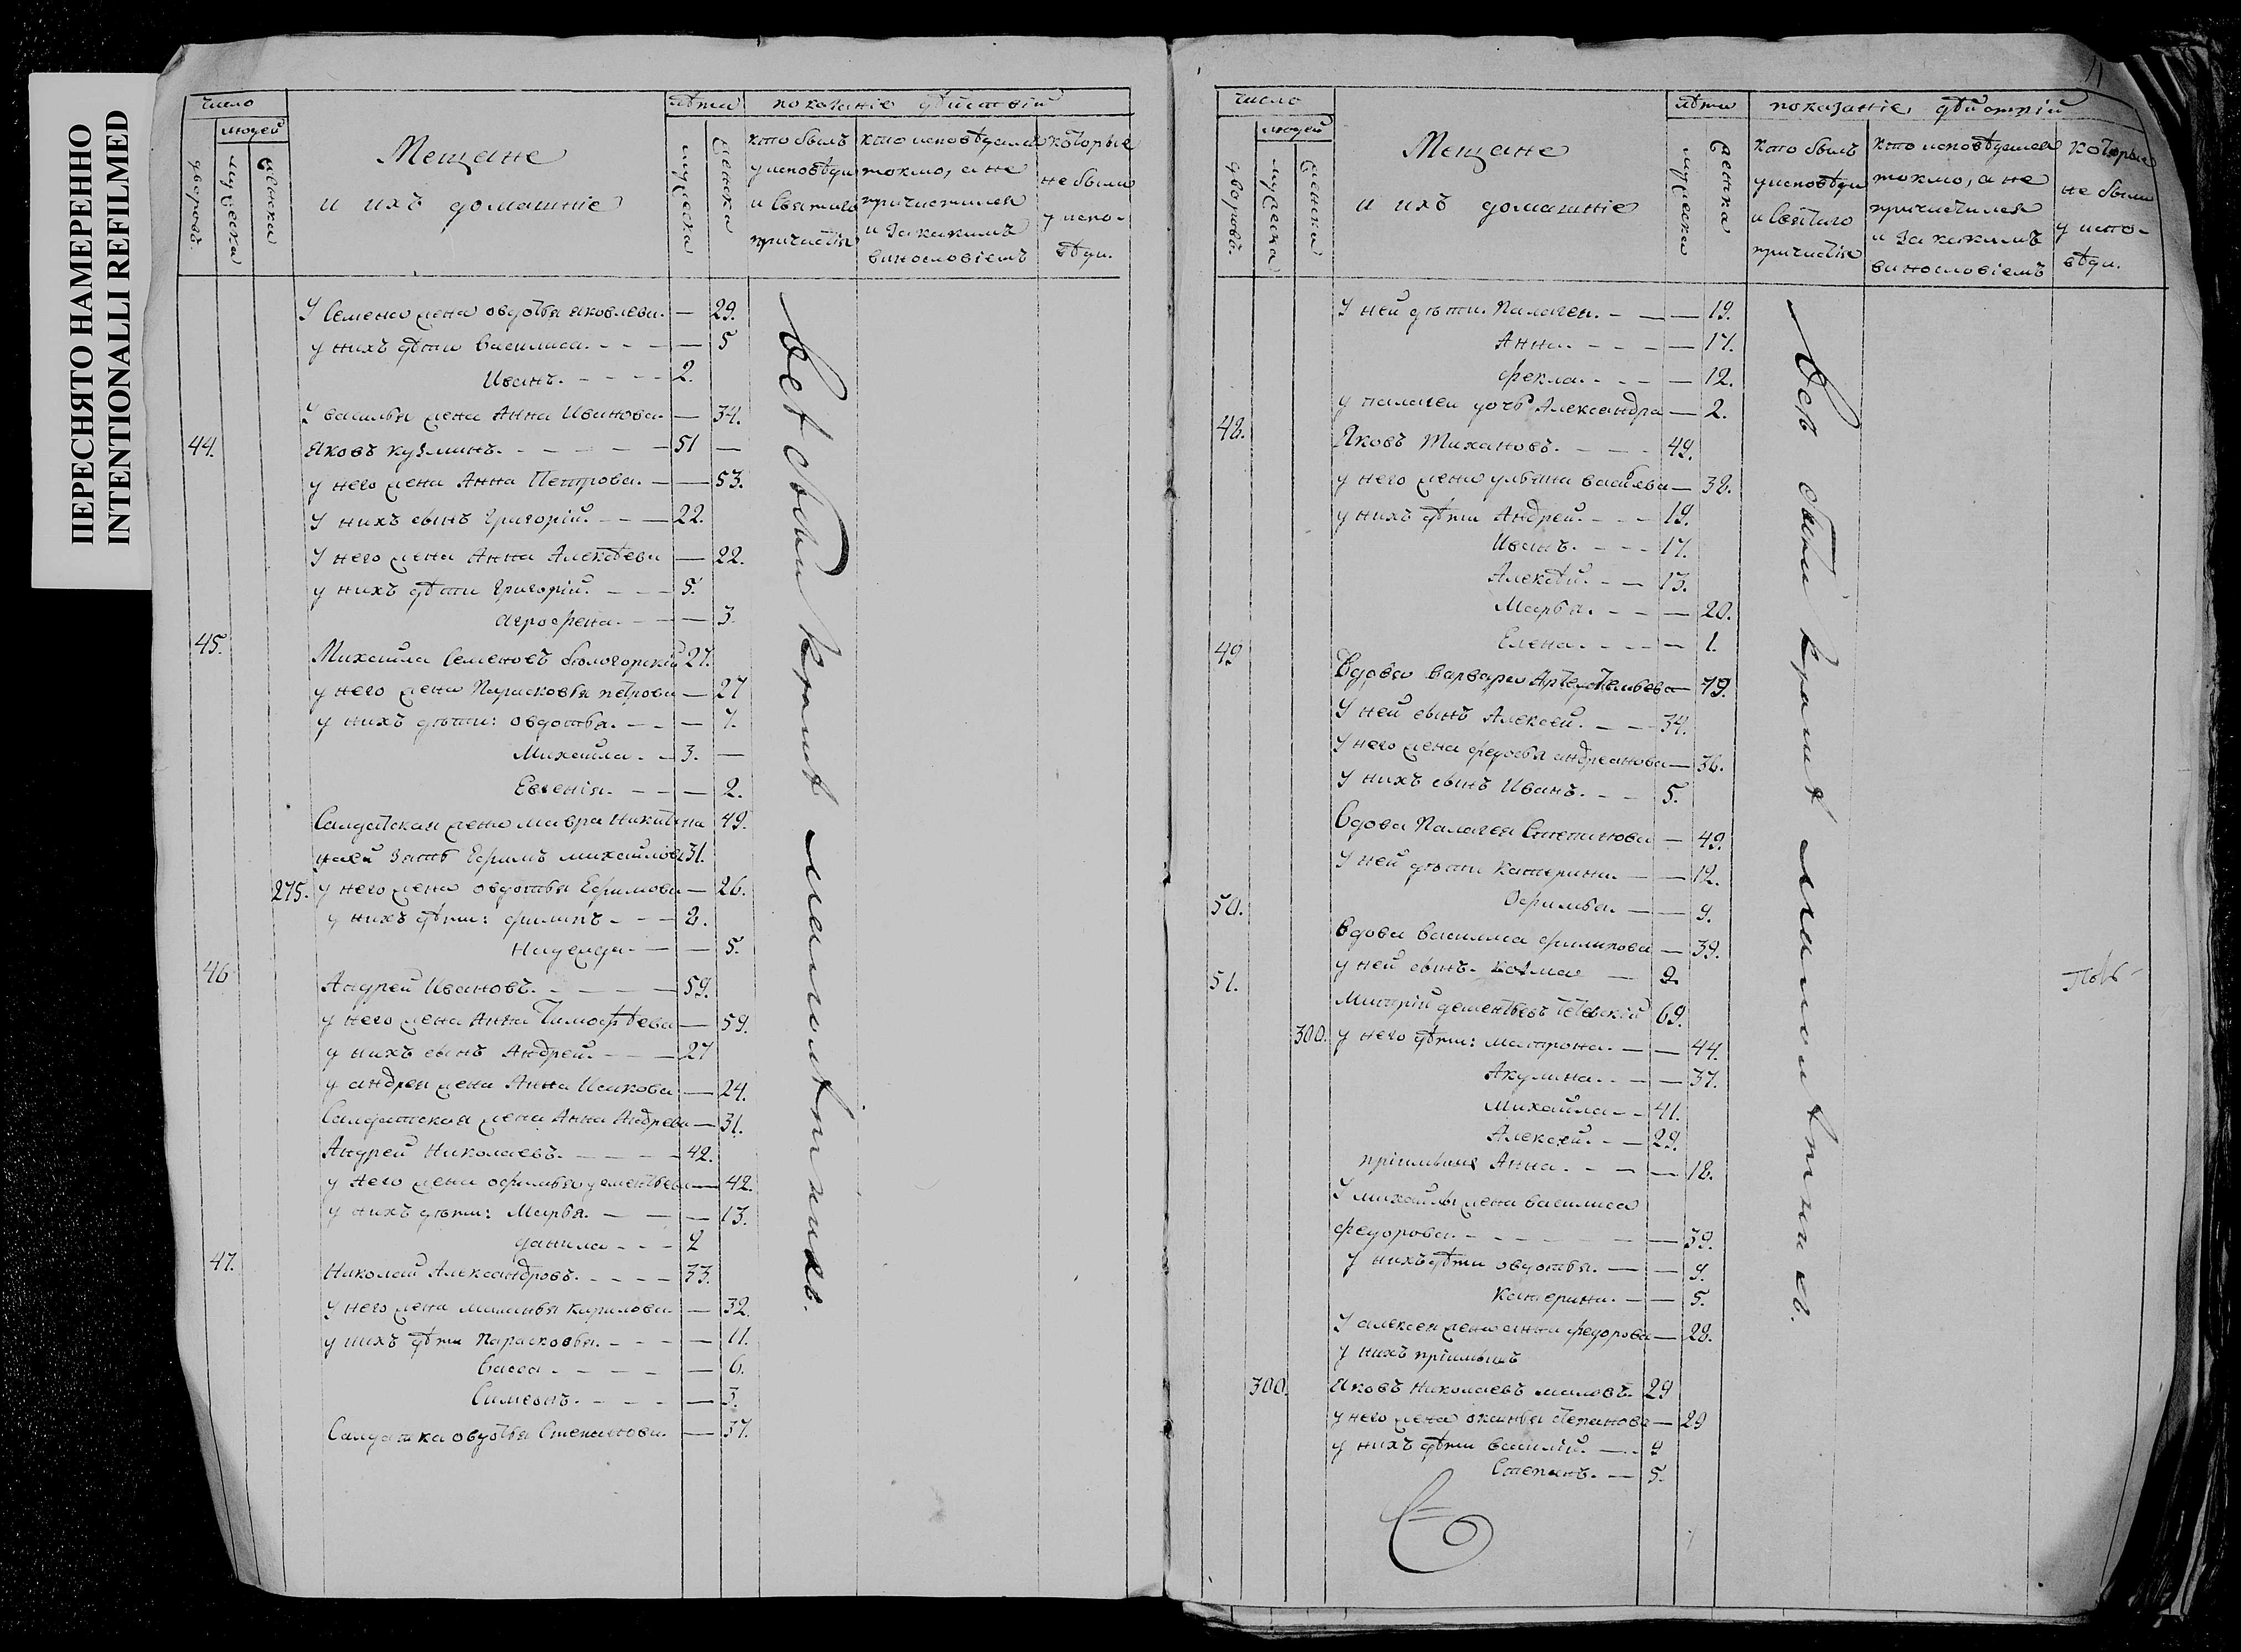 ПЕРЕСНЯТО НАМЕРЕННО
INTENTIONALLI REFILMED
число
людей
дворовъ.
мужеска
женска
Мещане
и ихъ домашніе
лѣта
мужеска
женска
показаніе дѣйствій
кто былъ
у исповѣди
и Святаго
причастія
кто исповѣдался
токмо, а не
причастился
и за какимъ
винословіемъ
которые
не были
у испо-
вѣди.
У Семена жена овдотья яковлева. — 29.
у нихъ дѣти Василиса. — 5
Иванъ. 2.
У василья жена Анна Иванова. — 34.
44. Яковъ кузминъ. 51 —
у него жена Анна Петрова. — 53.
У нихъ сынъ Григорій. — 22.
У него жена Анна Алексѣева — 22.
у нихъ дѣти Григорій. 5.
агрофена. — 3.
45. Михаила Семеновъ 27.
у него жена Парасковья петрова — 27
у нихъ дѣти: овдотья. — 7.
Михаила. 3. —
Евгенія. — 2.
Салдатская жена мавра Никитина 49.
у ней зять Ефимъ михайловъ 31.
275. у него жена овдотья Ефимова — 26.
у нихъ дѣти: филипъ 2.
— 5.
46 Андрей Ивановъ. 59.
у него жена Анна Тимофѣева — 59.
у нихъ сынъ Андрей. 27
у андрея жена Анна Исакова — 24.
Салдатская жена Анна Андрева — 31.
Андрей Николаевъ. 42.
у него жена офимья дементьева — 42.
у нихъ дѣти: Марья. — 13.
данила 2
47. Николай Александровъ. 33.
у него жена кирилова — 32.
у нихъ дѣти Парасковья. — 11.
Васса — 6.
Симеонъ. — 3.
Салдатка овдотья Степанова. — 37.
всѣ были кромѣ малолѣтнихъ.
11
число
людей
дворовъ.
мужеска
женска
Мещане
и ихъ домашніе
лѣта
мужеска
женска
показаніе дѣйствій
кто былъ
у исповѣди
и Святаго
причастія
кто исповѣдался
токмо, а не
причастился
и за какимъ
винословіемъ
которые
не были
у испо-
вѣди.
У ней дѣти. Палагея. — 19.
Анна. — 17.
фекла. — 12.
у палагеи дочь Александра — 2.
48. Яковъ Тихановъ. 49.
у него жена ульяна васильева — 38.
у нихъ дѣти Андрей. 19.
Иванъ. 17.
Алексѣй. 13.
Марья. — 20.
Елена. — 1.
49 Вдова варвара — 79.
У ней сынъ Алексей. 34.
У него жена федосья андреанова — 36.
У нихъ сынъ Иванъ. 5.
Вдова Палагея Степанова — 49.
У ней дѣти катерина. — 12.
Офимья. — 9.
50. Вдова Василиса филипова — 39.
у ней сынъ. козма 9.
51. Митрій дементьевъ 69.
300. у него дѣти: матрона. — 44.
Акулина. — 37.
Михайла 41.
Алексей. 29.
пріимышъ Анна. — 18.
У михайлы жена василиса
федорова. — 39.
У нихъ дѣти овдотья. — 9.
катерина. — 5.
У алексея жена анна федорова — 28.
у нихъ пріимышъ
300. Яковъ Николаевъ 29
у него жена степанова — 29
у нихъ дѣти василій. 9
Степанъ. 5.
всѣ были кромѣ малолѣтнихъ.